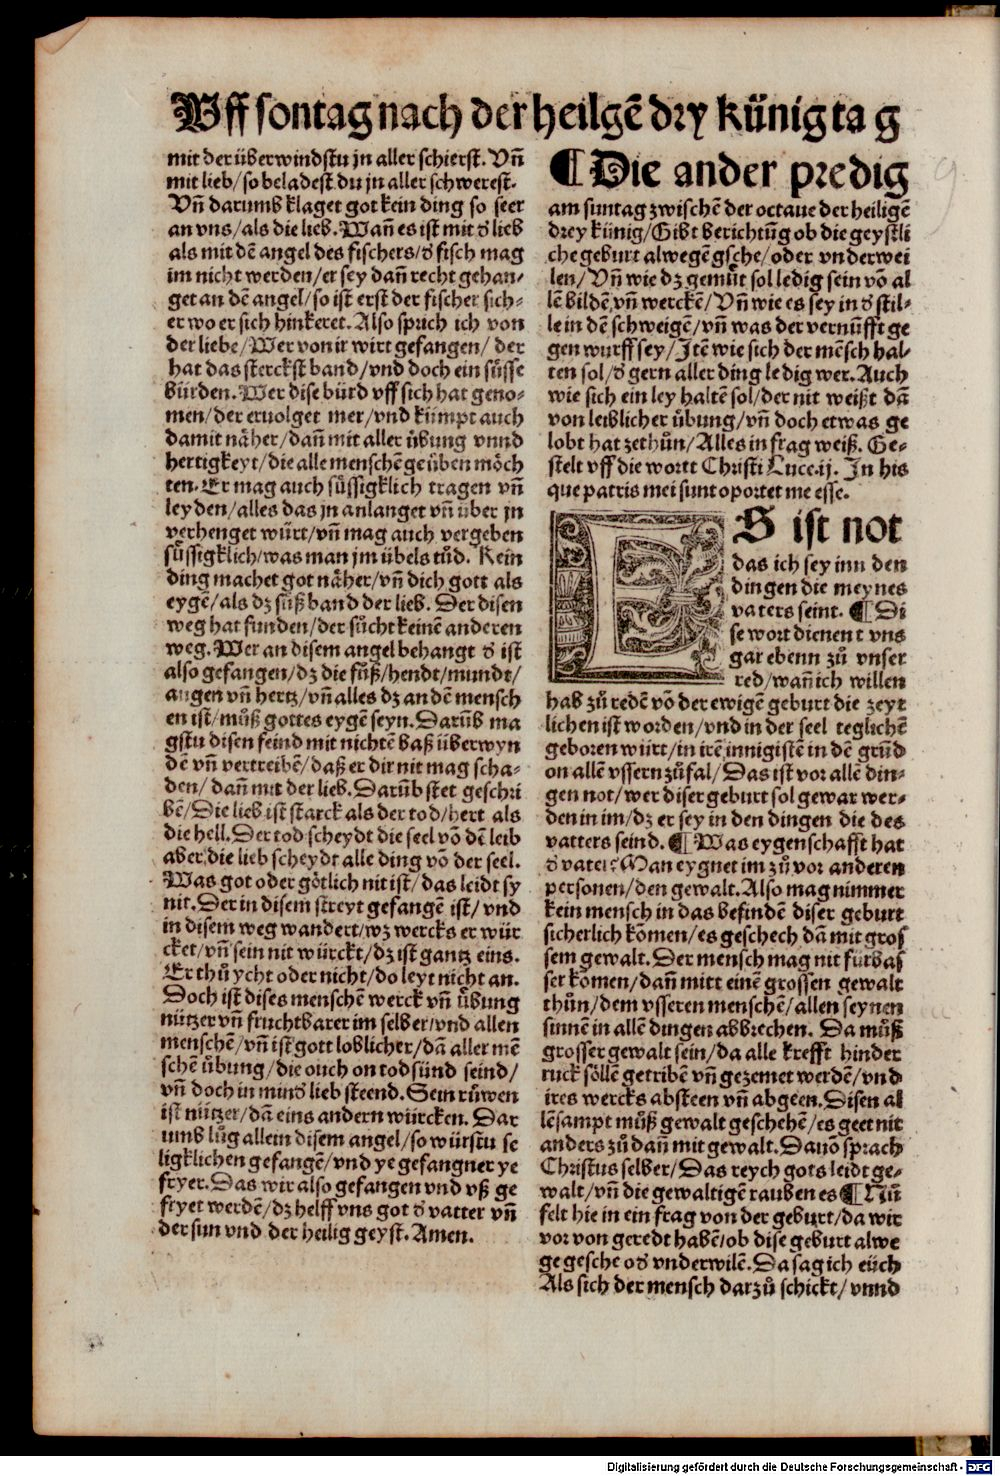 Uff sontag nach der heilgē dry künig tag
mit der überwindstu jn aller schierst. Vñ
mit lieb/ so beladest du jn aller schwerest.
Vñ darumb klaget got kein ding so seer
an vns/als die lieb. Wañ es ist mit d̕ lieb
als mit dē angel des fischers/d̕ fisch mag
im nicht werden/er sey dañ recht gehan-
get an dē angel/so ist erst der fischer sich-
er wo er sich hinkeret. Also sprich ich von
der liebe/Wer von ir wirt gefangen/ der
hat das sterckst band/vnd doch ein süsse
bürden. Wer dise bürd vff sich hat geno-
men/der ervolget mer/vnd kümpt auch
damit näher/dañ mit aller übung vnnd
hertigkeyt/die alle menschē ge üben möch
ten. Er mag auch süssigklich tragen vñ
leyden/alles das jn anlanget vñ über jn
verhenget würt/vñ mag auch vergeben
süssigklich/was man jm übels tůd. Kein
ding machet got näher/vñ dich gott als
eygē/als dz süß band der lieb. Der disen
weg hat funden/der sůcht keinē anderen
weg. Wer an disem angel behangt d̕ ist
also gefangen/dz die fůß/hendt/mundt/
augen vñ hertz/vñ alles dz an dē mensch
en ist/můß gottes eygē seyn. Darūb ma
gstu disen feind mit nichtē baß überwyn
dē vñ vertreibē/daß er dir nit mag scha-
den/ dañ mit der lieb. Darūb stet geschri
bē/Die lieb ist starck als der tod/hert als
die hell. Der tod scheydt die seel vō dē leib
aber die lieb scheydt alle ding vō der seel.
Was got oder götlich nit ist/das leidt sy
nit. Der in disem streyt gefangē ist/vnd
in disem weg wandert/wz wercks er wür
cket/vñ sein nit würckt/dz ist gantz eins.
Er thů ycht oder nicht/do leyt nicht an.
Doch ist dises menschē werck vñ übung
nützer vñ fruchtbarer im selber/vnd allen
menschē/vñ ist gott loblicher/dā aller mē
schē übung/die ouch on todsünd seind/
vñ doch in mind̕ lieb steend. Sein růwen
ist nützer/dā eins andern würcken. Dar
umb lůg allein disem angel/so würstu se
ligklichen gefangē/vnd ye gefangner ye
fryer. Das wir also gefangen vnd vß ge
fryet werdē/dz helff vns got d̕ vatter vñ
der sun vnd der heilig geyst. Amen.
¶ Die ander predig
am suntag zwischē der octaue der heiligē
drey künig/Gibt berichtūg ob die geystli
che geburt alwegē gsche/oder vnderwei
len/Vñ wie dz gemüt sol ledig sein vō al
lē bildē vñ werckē/Vñ wie es sey in d̕ stil-
le in dē schweigē/vñ was der vernüfft ge
gen wurff sey/Itē wie sich der mēsch hal-
ten sol/d̕ gern aller ding ledig wer. Auch
wie sich ein ley haltē sol/der nit weißt dā
von leiblicher übung/vñ doch etwas ge
lobt hat zethůn/Alles in frag weiß. Ge-
stelt vff die wortt Christi Luce.ij. In his
que patris mei sunt oportet me esse.
ES ist not
das ich sey inn den
dingen die meynes
vaters seint. ¶ Di
se wort dienent vns
gar ebenn zů vnser
red/wañ ich willen
hab zů redē vō der ewigē geburt die zeyt
lichen ist worden/vnd in der seel teglichē
geboren würt/in irē innigistē in dē grūd
on allē vssern zůfal/Das ist vor allē din-
gen not/wer diser geburt sol gewar wer-
den in im/dz er sey in den dingen die des
vatters seind. ¶ Was eygenschafft hat
d̕ vater? Man eygnet im zů vor anderen
personen/den gewalt. Also mag nimmer
kein mensch in das befindē diser geburt
sicherlich kömen/es geschech dā mit gros
sem gewalt. Der mensch mag nit fürbas
ser kömen/dañ mitt einē grossen gewalt
thůn/dem vsseren menschē/allen seynen
sinnē in allē dingen abbrechen. Da můß
grosser gewalt sein/da alle krefft hinder
ruck söllē getribē vñ gezemet werdē/vnd
ires wercks absteen vñ abgeen. Disen al
lēsampt můß gewalt geschehē/es geet nit
anders zů dañ mit gewalt. Dauō sprach
Christus selber/Das reych gots leidt ge-
walt/vñ die gewaltigē rauben es ¶ Nū
felt hie in ein frag von der geburt/da wir
vor von geredt habē/ob dise geburt alwe
ge gesche od̕ vnderwilē. Da sag ich eüch
Als sich der mensch darzů schickt/vnnd
9
Digitalisierung gefördert durch die Deutsche Forschungsgemeinschaft - DFG